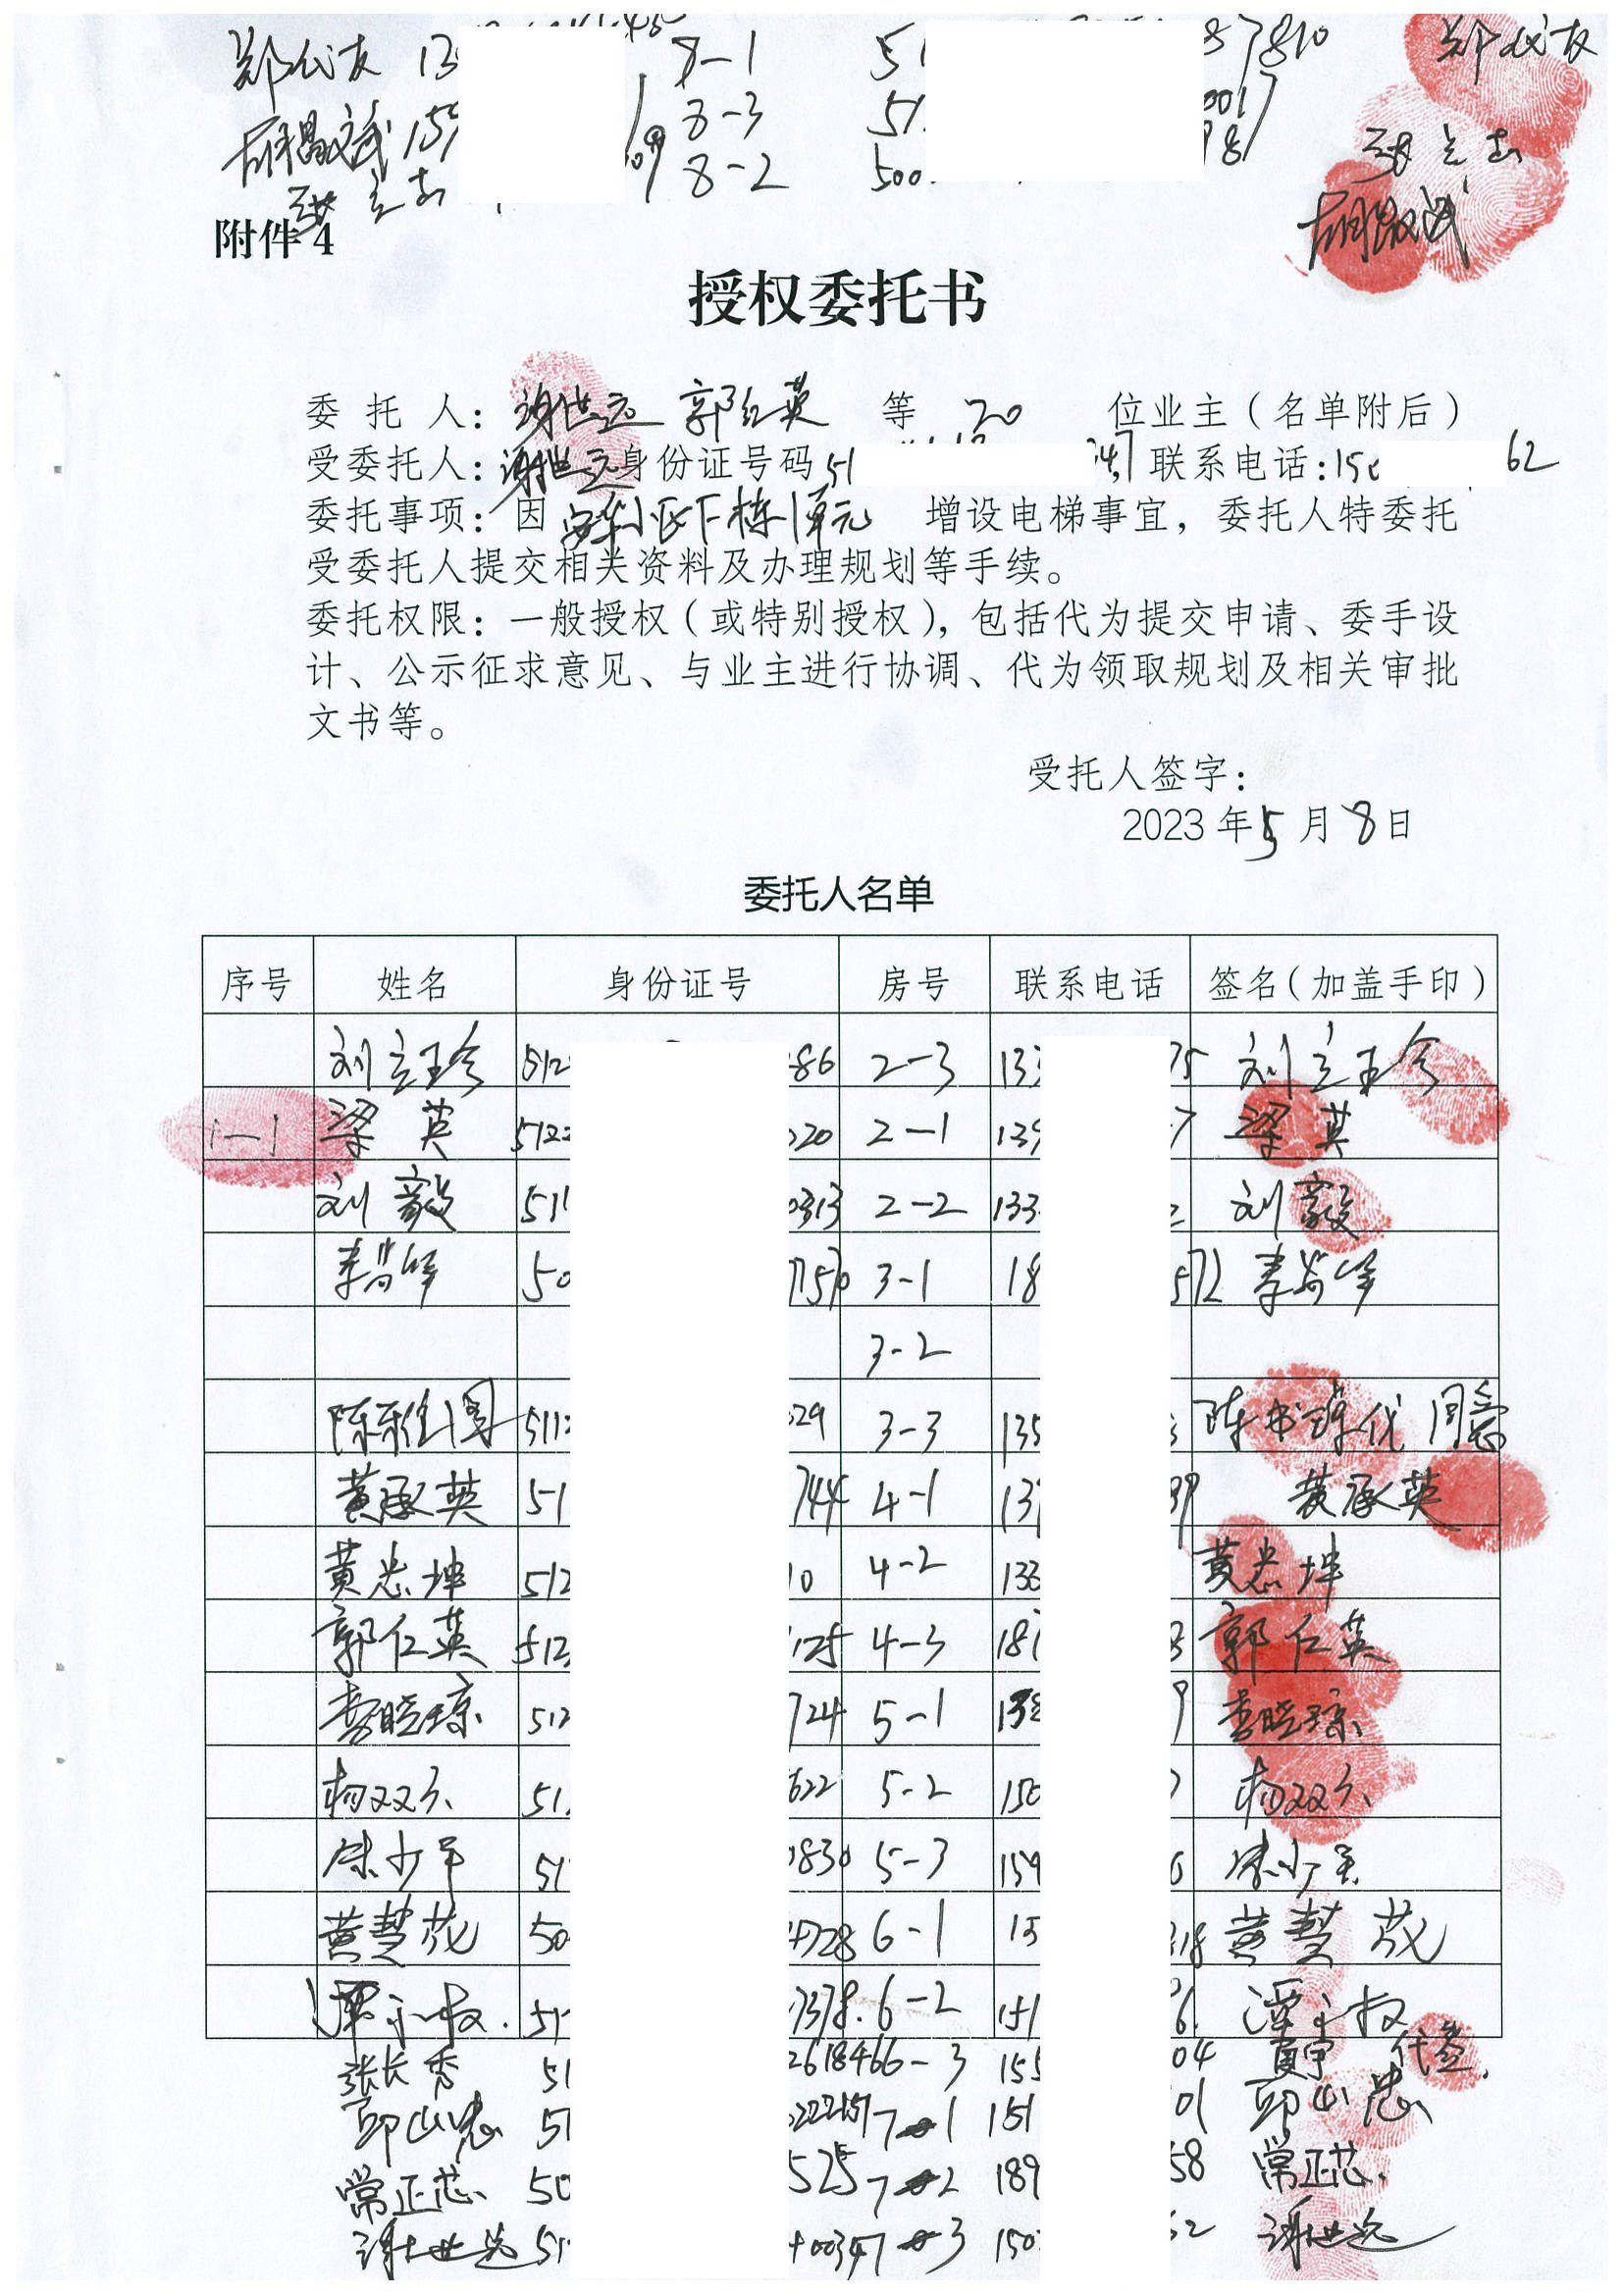 郑代友 13 8-1 51 87810 郑代友
胡敬斌 159 8-3 51 0017
张立志 09 8-2 500 98 张立志
胡敬斌
附件4
授权委托书
委 托 人：谢世远 郭仁英 等 20 位业主（名单附后）
受委托人：谢世远 身份证号码 51 347 联系电话：150 62
委托事项：因 安华小区下栋1单元 增设电梯事宜，委托人特委托
受委托人提交相关资料及办理规划等手续。
委托权限：一般授权（或特别授权），包括代为提交申请、委手设
计、公示征求意见、与业主进行协调、代为领取规划及相关审批
文书等。
受托人签字：
2023 年 5 月 8 日
委托人名单
序号 姓名 身份证号 房号 联系电话 签名（加盖手印）
刘立珍 512 86 2-3 133 75 刘立珍
1-1 梁英 5122 020 2-1 139 7 梁英
刘毅 511 0313 2-2 133 2 刘毅
李 50 3-1 18 572 李
3-2
陈 511 029 3-3 135 3 陈书 代 同意
黄承英 51 744 4-1 137 39 黄承英
黄忠坤 512 10 4-2 133 黄忠坤
郭仁英 512 125 4-3 187 3 郭仁英
李晓琼 512 724 5-1 138 9 李晓琼
杨双 51 622 5-2 150 7 杨双
陈少军 51 0830 5-3 159 6 陈少军
黄慧茂 50 728 6-1 15 318 黄慧茂
谭 51 7378. 6-2 151 6. 谭
张长秀 51 261846 6-3 155 04 代签.
邱山忠 51 7-1 151 01 邱山忠
常正芯 50 525 7-2 189 58 常正芯
谢世远 51 00347 7-3 150 62 谢世远